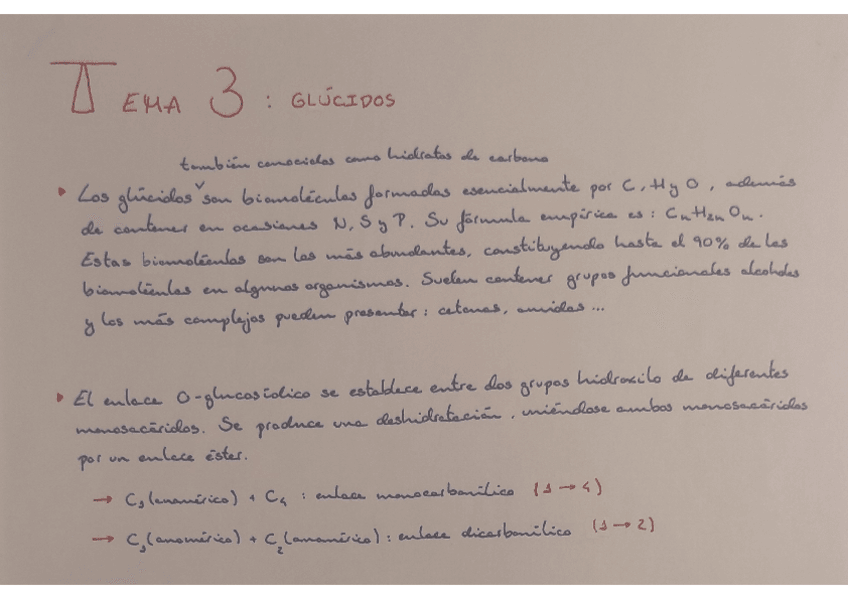 TEMA 3 : GLÚCIDOS
también conocidos como hidratos de carbono
Los glúcidos son biomoléculas formadas esencialmente por C, H y O, además
de contener en ocasiones N, S y P. Su fórmula empírica es : CnH2nOn.
Estas biomoléculas son las más abundantes, constituyendo hasta el 90% de las
biomoléculas en algunos organismos. Suelen contener grupos funcionales alcoholes
y los más complejos pueden presentar : cetonas, amidas ...
El enlace O-glucosídico se establece entre dos grupos hidroxilo de diferentes
monosacáridos. Se produce una deshidratación, uniéndose ambos monosacáridos
por un enlace éster.
→ C1 (anomérico) + C4 : enlace monocarbonílico (1 → 4)
→ C1 (anomérico) + C2 (anomérico) : enlace dicarbonílico (1 → 2)